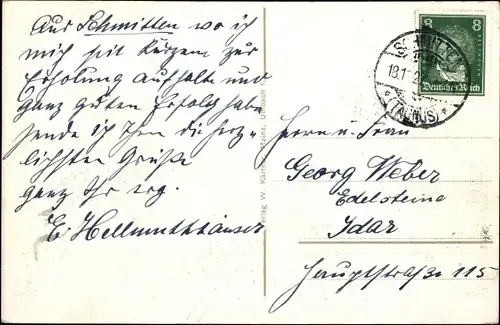 Aus Schmitten wo ich
mich seit Kurzem zur
Erholung aufhalte und
ganz guten Erfolg habe
sende ich Ihnen die herz-
lichsten Grüße
ganz Ihr erg.
E. Hellmuthhäuser
8 8
Deutsches Reich
(TAUNUS)
Herrn u. Frau
Georg Weber
Edelsteine
Idar
Hauptstraße 115